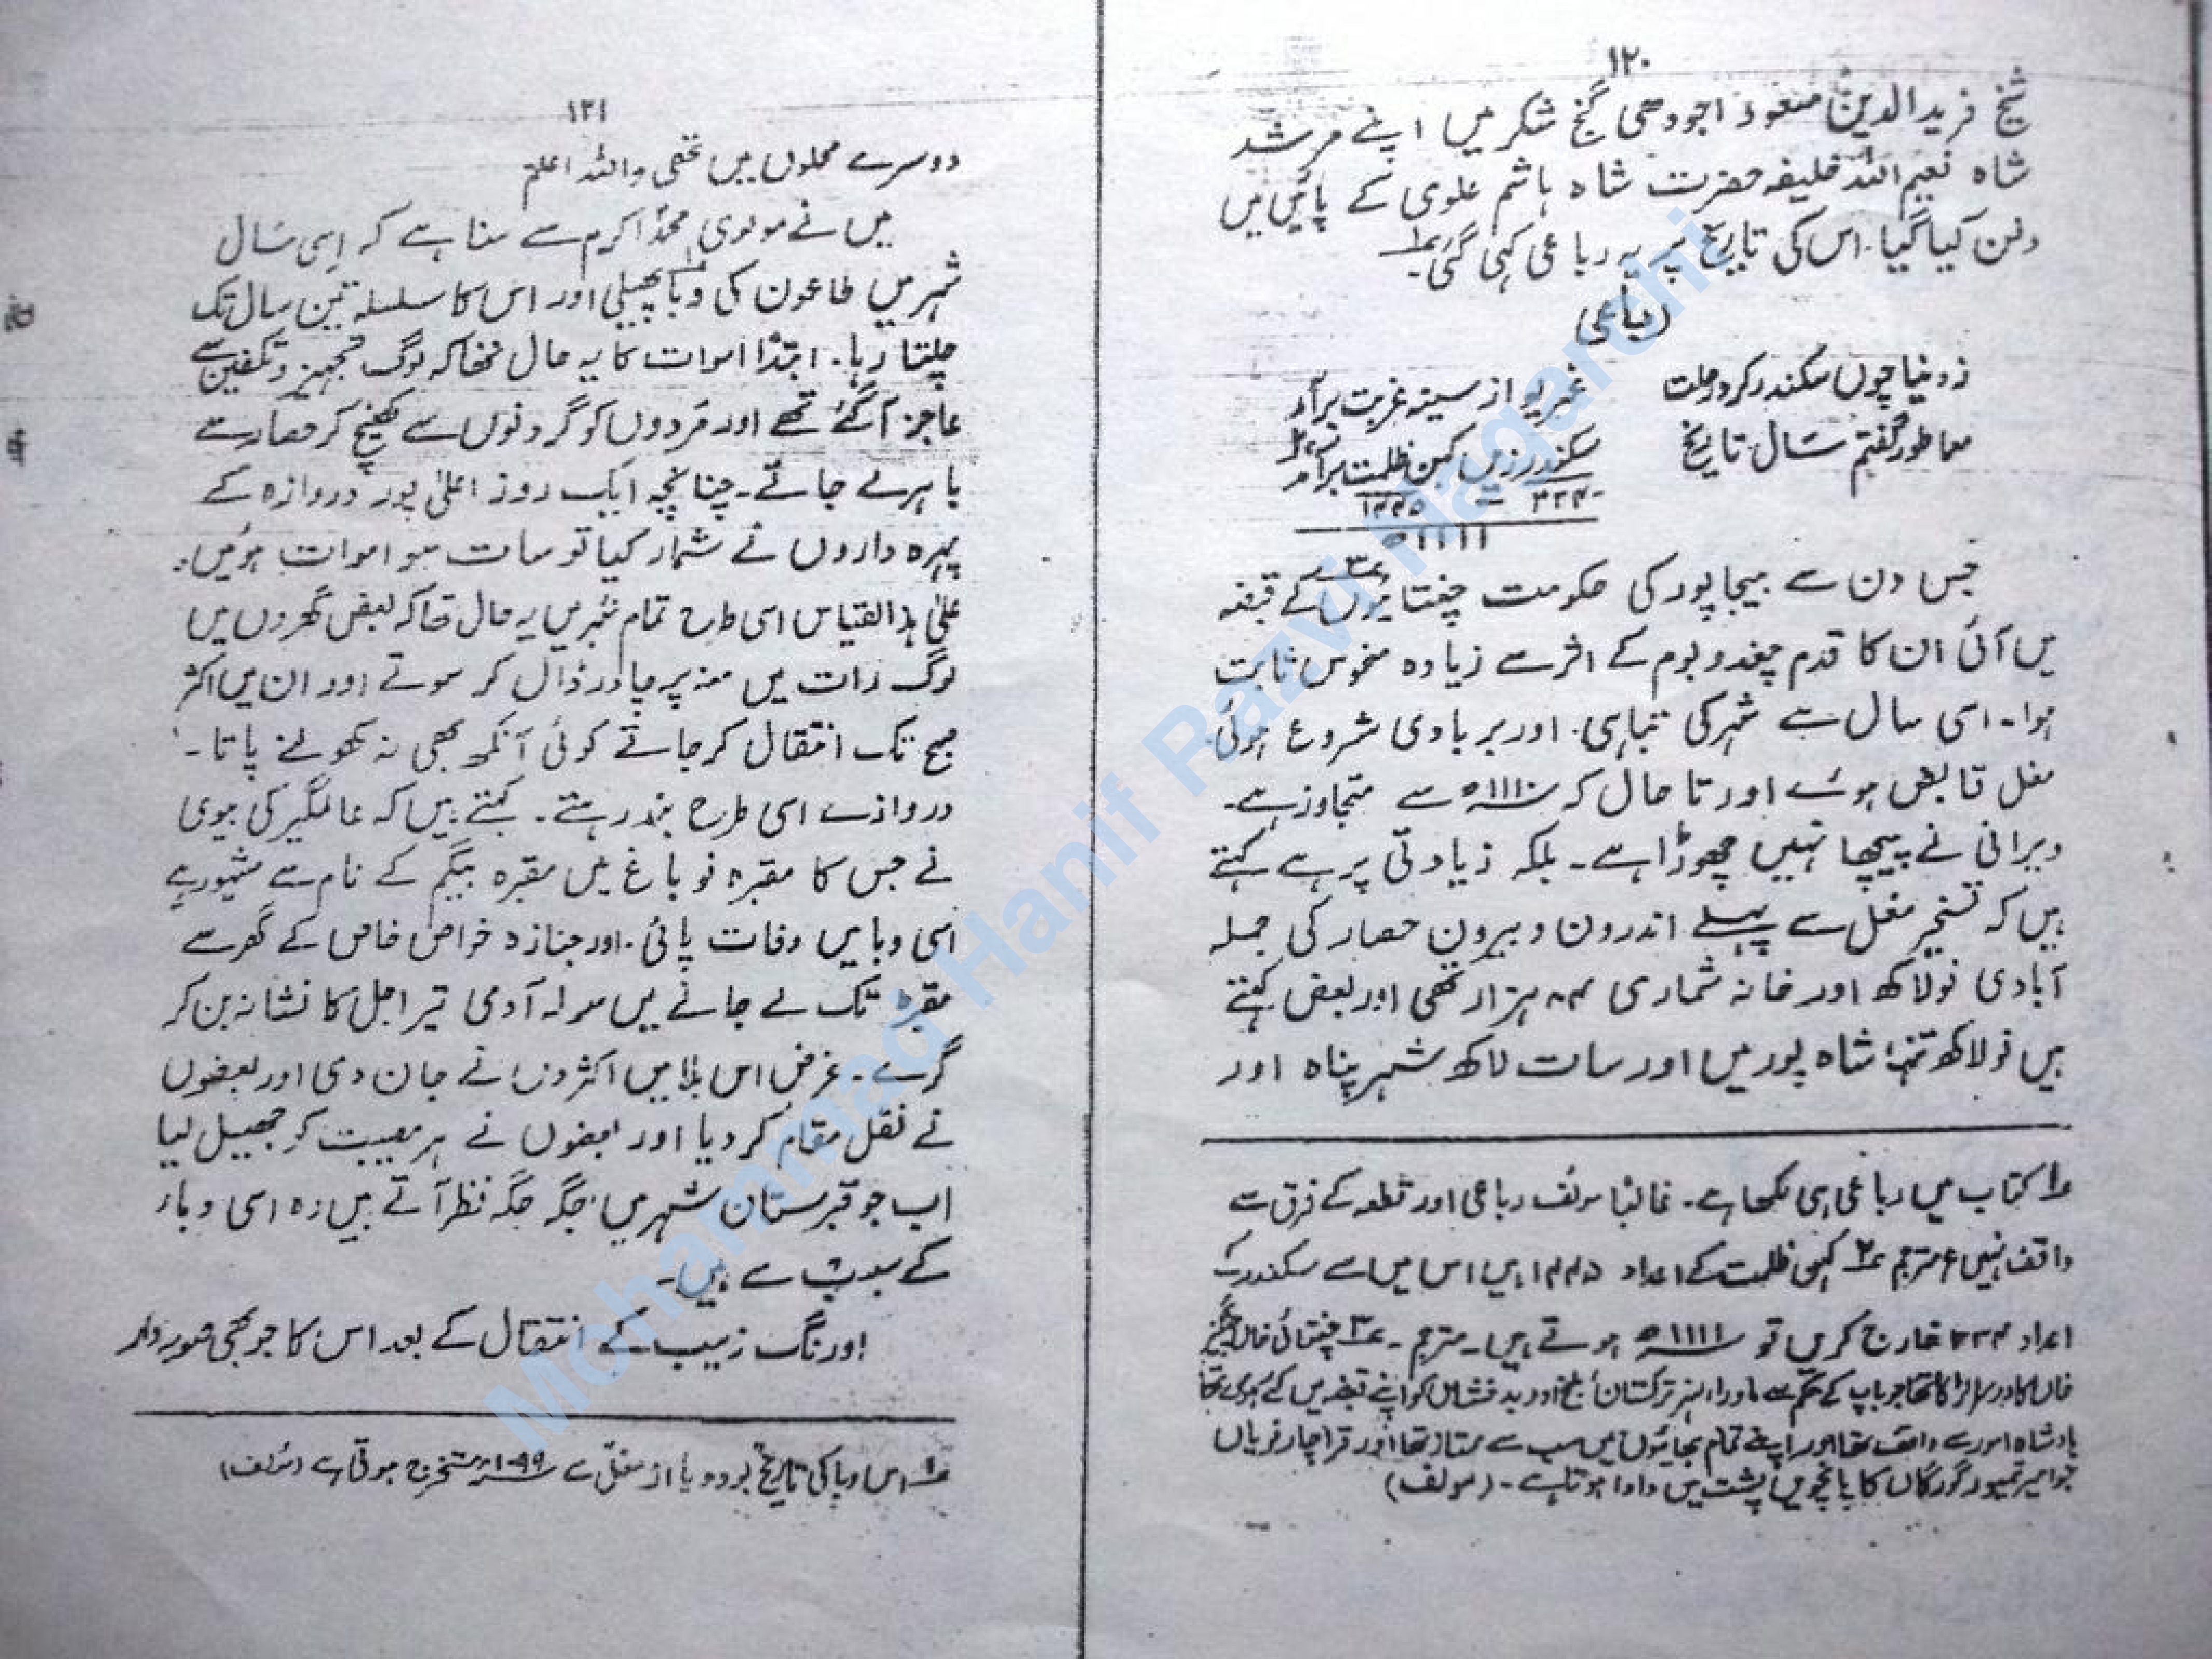 ۱۲۰
شیخ فرید الدین مسعود اجودھی گنج شکر میں اپنے مرشد
شاہ نعیم اللہ خلیفہ حضرت شاہ ہاشم علوی کے پائیں میں
دفن کیا گیا۔ اس کی تاریخ پر یہ رباعی کہی گئی۔ ۱؎
(رباعی)
ز دنیا چوں سکندر کرد رحلت غریو از سینہ غربت برآمد
معاطور گفتم سال تاریخ سکندر زیں کہن ظلمت برآمد ۲؎
۳۳۴ - ۱۴۴۵
۱۱۱۱ھ
جس دن سے بیجاپور کی حکومت چغتائیوں ۳؎ کے قبضہ
میں آئی ان کا قدم چغد و بوم کے اثر سے زیادہ منحوس ثابت
ہوا۔ اسی سال سے شہر کی تباہی۔ اور بربادی شروع ہوئی۔
مغل قابض ہوئے اور تا حال کہ ۱۱۱۰ھ سے متجاوز ہے۔
ویرانی نے پیچھا نہیں چھوڑا ہے۔ بلکہ زیادتی پر ہے کہتے
ہیں کہ تسخیر مغل سے پہلے اندرون و بیرون حصار کی جملہ
آبادی نو لاکھ اور خانہ شماری ہزار تھی اور بعض کہتے
ہیں نو لاکھ تنہا شاہ پور میں اور سات لاکھ شہر پناہ اور
۱؎ کتاب میں رباعی ہی لکھا ہے۔ غالباً مولف رباعی اور قطعہ کے فرق سے
واقف نہیں مترجم ۲؎ کہن ظلمت کے اعداد ۱۴۴۵ ہیں اس میں سے سکندر کے
اعداد ۳۳۴ خارج کریں تو ۱۱۱۱ھ ہوتے ہیں۔ مترجم۔ ۳؎ چغتائی خاں چنگیز
خاں کا دوسرا لڑکا تھا جو باپ کے حکم سے ماوراء النہر ترکستان بلخ اور بدخشاں کو اپنے قبضہ میں کئے ہوئے تھا
بادشاہ امور سے واقف تھا اور اپنے تمام بھائیوں میں سب سے ممتاز تھا اور قراچار نویاں
جو امیر تیمور گورگاں کا پانچویں پشت میں دادا ہوتا ہے۔ (مولف)
۱۲۱
دوسرے محلوں میں تھی واللہ اعلم
میں نے مولوی محمد اکرم سے سنا ہے کہ اسی سال
شہر میں طاعون کی وبا ۱؎ پھیلی اور اس کا سلسلہ تین سال تک
چلتا رہا۔ ابتدًا اموات کا یہ حال تھا کہ لوگ تجہیز و تکفین سے
عاجز آگئے تھے اور مردوں کو گردنوں سے کھینچ کر حصار سے
باہر لے جاتے۔ چنانچہ ایک روز اعلیٰ پور دروازہ کے
پہرہ داروں نے شمار کیا تو سات سو اموات ہوئیں۔
علیٰ ہذالقیاس اسی طرح تمام شہر میں یہ حال تھا کہ بعض گھروں میں
لوگ رات میں منہ پر چادر ڈال کر سوتے اور ان میں اکثر
صبح تک انتقال کر جاتے کوئی آنکھ بھی نہ کھولنے پاتا۔
دروازے اسی طرح بند رہتے۔ کہتے ہیں کہ عالمگیر کی بیوی
نے جس کا مقبرہ نو باغ میں مقبرہ بیگم کے نام سے مشہور ہے
اسی وبا میں وفات پائی۔ اور جنازہ خواص خاں کے گھر سے
مقبرہ تک لے جانے میں سولہ آدمی تیر اجل کا نشانہ بن کر
گرے۔ غرض اس بلا میں اکثروں نے جان دی اور بعضوں
نے نقل مقام کر دیا اور بعضوں نے ہر مصیبت کو جھیل لیا
اب جو قبرستان شہر میں جگہ جگہ نظر آتے ہیں وہ اسی وبا
کے سبب سے ہیں۔
اورنگ زیب کے انتقال کے بعد اس کا جو بھی صوبہ دار
۱؎ اس وبا کی تاریخ بود وبا از مغل سے ۱۰۹۹ھ مستخرج ہوتی ہے (مولف)
Mohammad Hanif Razvi Nagarchi